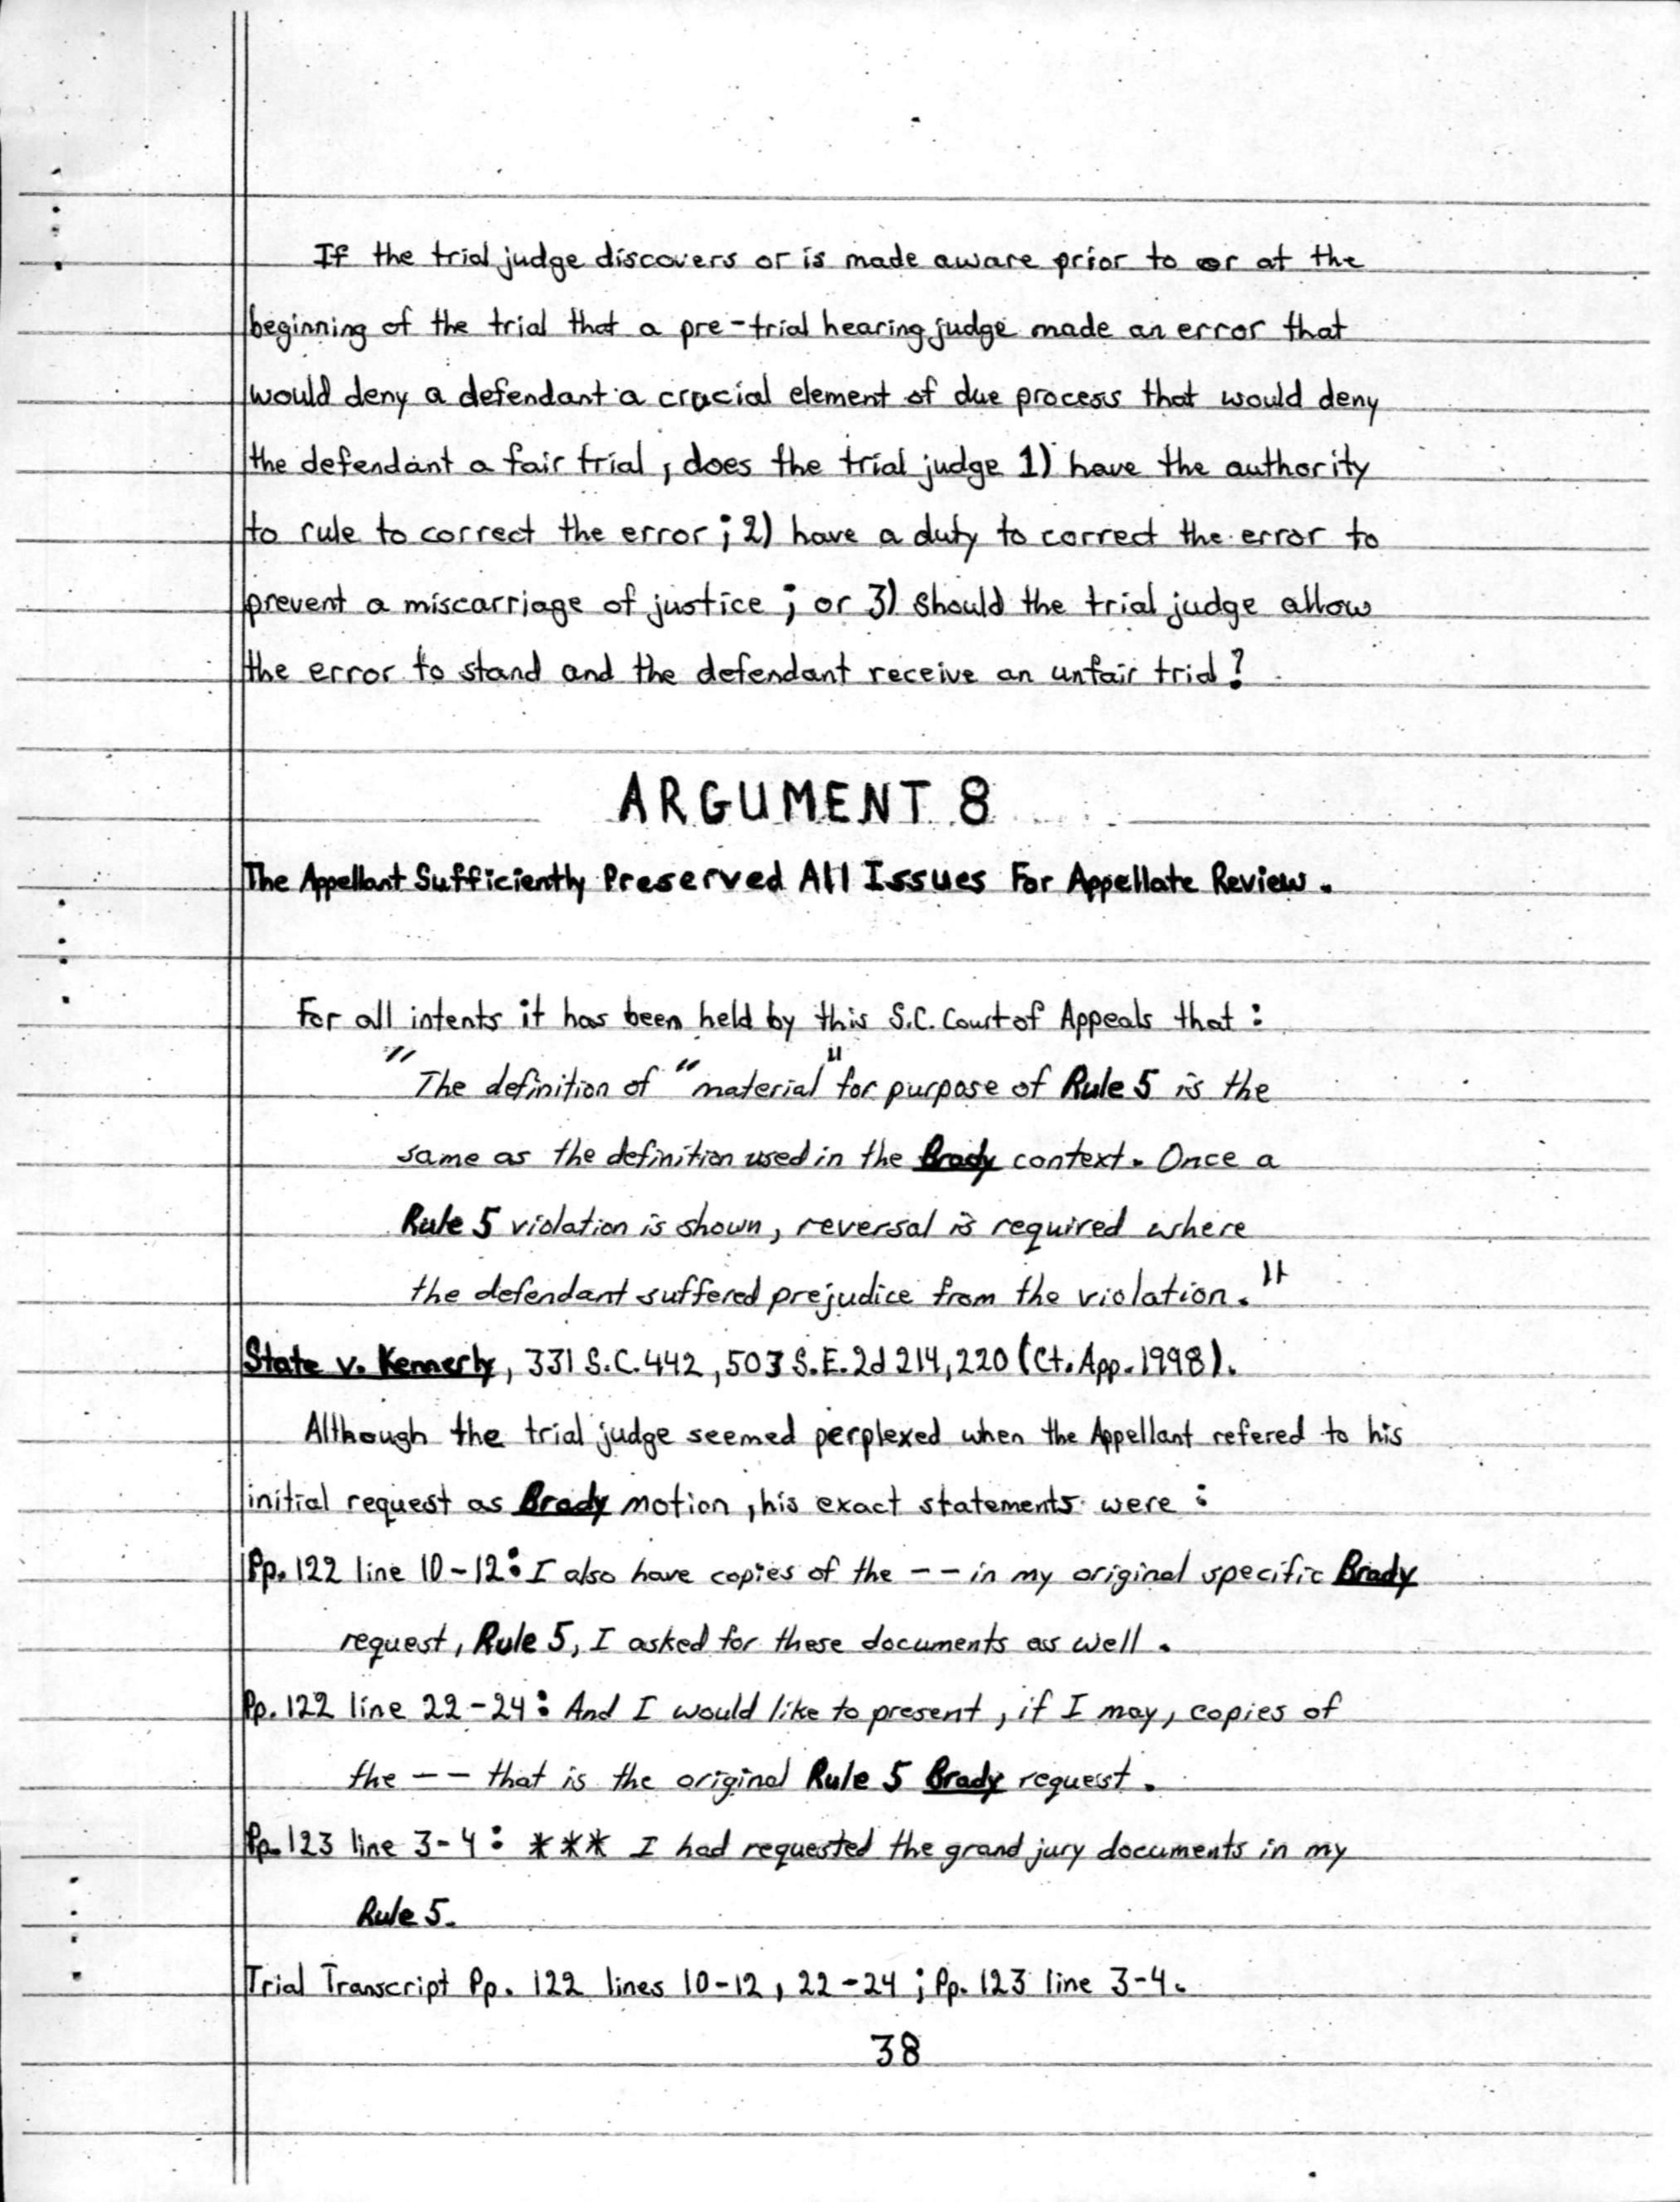 If the trial judge discovers or is made aware prior to or at the
beginning of the trial that a pre-trial hearing judge made an error that
would deny a defendant a crucial element of due process that would deny
the defendant a fair trial, does the trial judge 1) have the authority
to rule to correct the error; 2) have a duty to correct the error to
prevent a miscarriage of justice; or 3) should the trial judge allow
the error to stand and the defendant receive an unfair trial?
ARGUMENT 8
The Appellant Sufficiently Preserved All Issues For Appellate Review.
For all intents it has been held by this S.C. Court of Appeals that:
"The definition of "material" for purpose of Rule 5 is the
same as the definition used in the Brady context. Once a
Rule 5 violation is shown, reversal is required where
the defendant suffered prejudice from the violation."
State v. Kennerly, 331 S.C. 442, 503 S.E.2d 214, 220 (Ct. App. 1998).
Although the trial judge seemed perplexed when the Appellant refered to his
initial request as Brady motion, his exact statements were:
Pp. 122 line 10-12: I also have copies of the -- in my original specific Brady
request, Rule 5, I asked for these documents as well.
Pp. 122 line 22-24: And I would like to present, if I may, copies of
the -- that is the original Rule 5 Brady request.
Pp. 123 line 3-4: *** I had requested the grand jury documents in my
Rule 5.
Trial Transcript Pp. 122 lines 10-12, 22-24; Pp. 123 line 3-4.
38